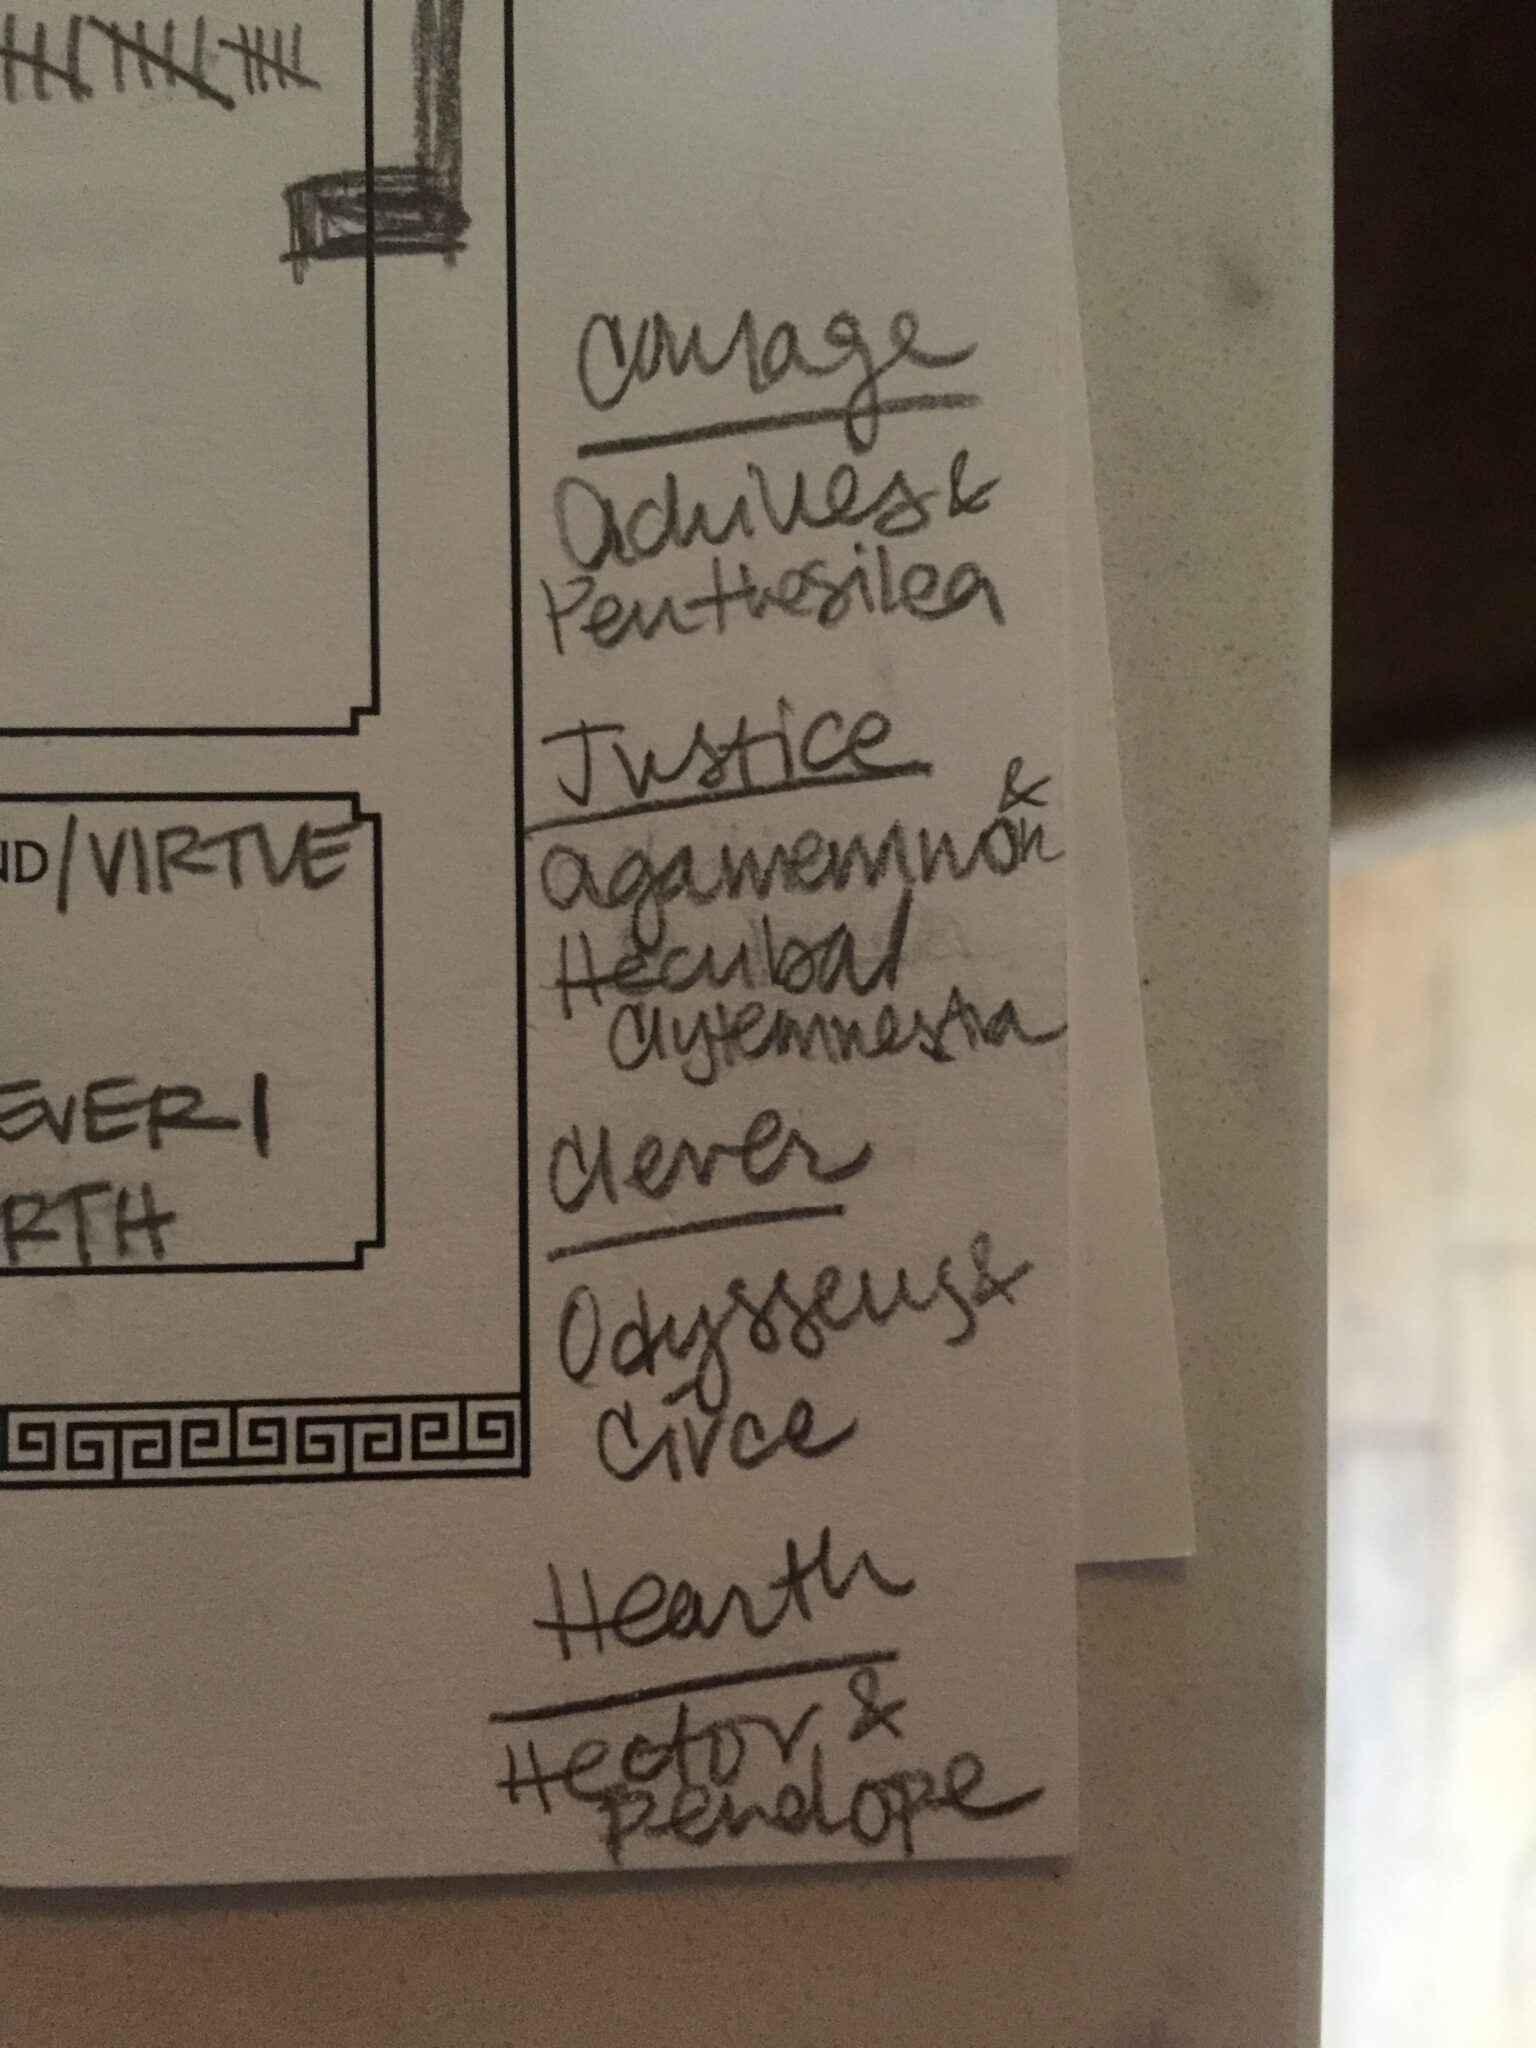 Courage
Achilles &
Penthesilea
Justice
&
agamemnon
Hecuba/
Clytemnestra
Clever
Odysseus &
Circe
Hearth
Hector &
Penelope
ND/VIRTUE
EVER /
RTH